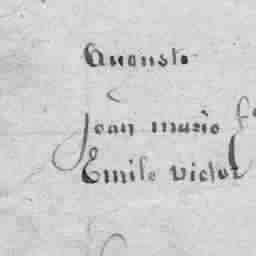 Auguste
Jean marie fs
Emile victor